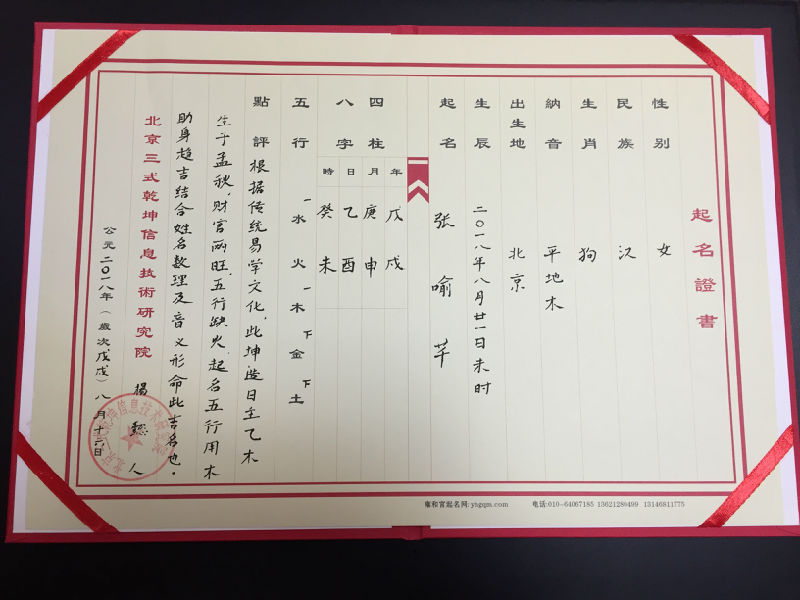 起名證書
性別 女
民族 汉
生肖 狗
納音 平地木
出生地 北京
生辰 二〇一八年八月廿一日未时
起名 张喻芊
四柱
八字
年 戊戌
月 庚申
日 乙酉
時 癸未
五行 一水 火 一木 下金 下土
點評 根据传统易学文化,此坤造日主乙木
生于孟秋,财官两旺,五行缺火,起名五行用木
助身趋吉结合姓名数理及音义形命此吉名也。
北京三式乾坤信息技術研究院 楊懿人
公元二〇一八年(歲次戊戌)八月十六日
雍和宫起名网:yhgqm.com 电话:010-64067185 13621280499 13146811775